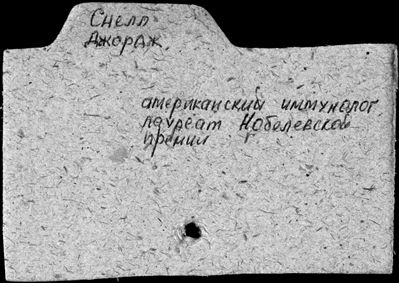 Снелл
Джордж
американский иммунолог
лауреат Нобелевской
премии